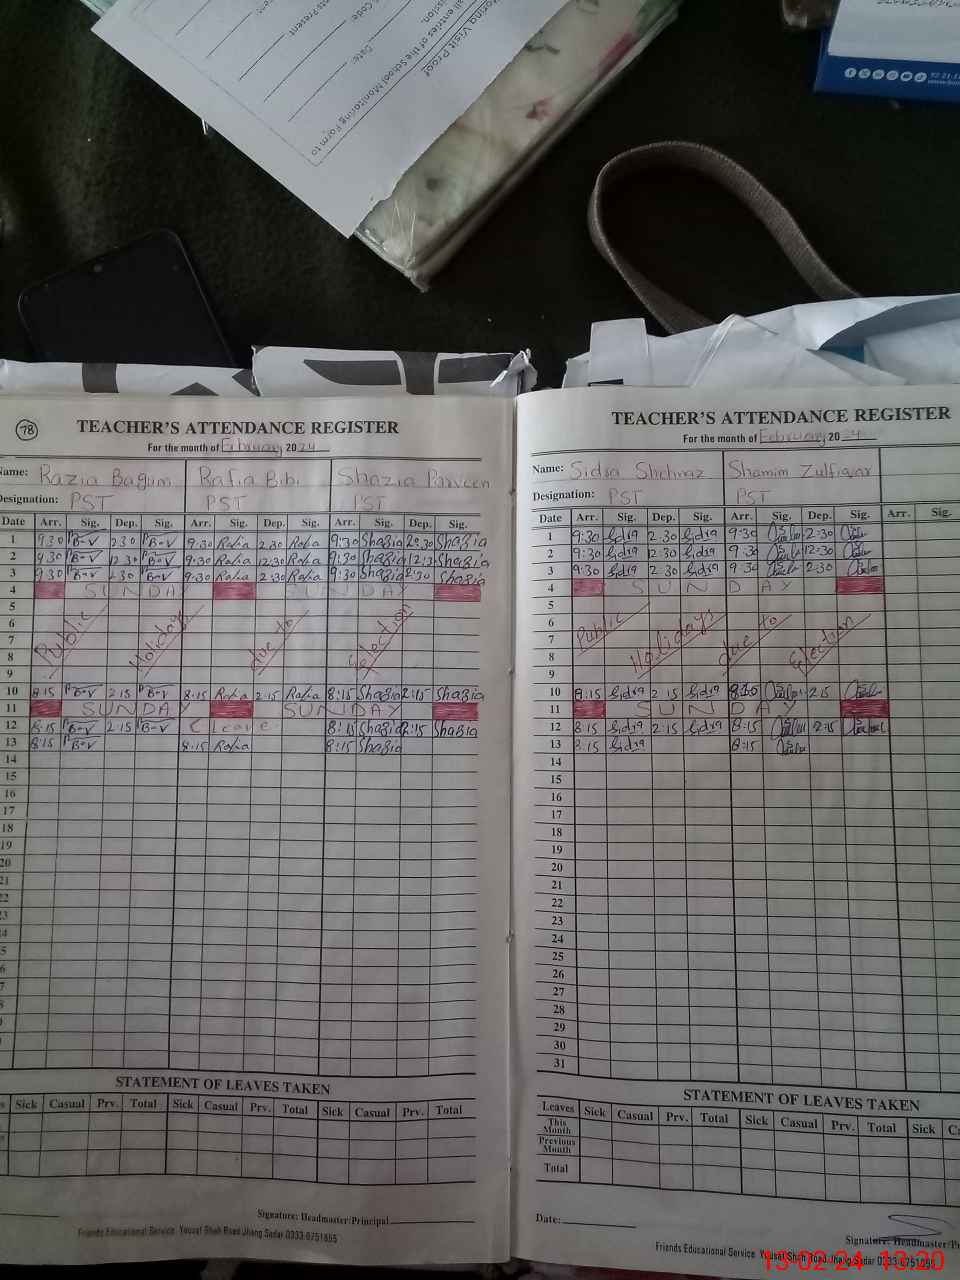 oring Visit Proof
all entries of the School Monitoring Form to
ission.
Code:
Date:
78
TEACHER'S ATTENDANCE REGISTER
For the month of February 2024
Name: Razia Bagum Rafia Bibi Shazia Parveen
Designation: PST PST PST
Date Arr. Sig. Dep. Sig. Arr. Sig. Dep. Sig. Arr. Sig. Dep. Sig.
1 9:30 2:30 9:30 Rafia 2:30 Rafia 9:30 Shazia 2:30 Shazia
2 9:30 12:30 9:30 Rafia 12:30 Rafia 9:30 Shazia 12:3 Shazia
3 9:30 2:30 9:30 Rafia 2:30 Rafia 9:30 Shazia 2:30 Shazia
4 SUNDAY SUNDAY
5
6
7
8
9
Public Holidays due to Election
10 8:15 2:15 8:15 Rafia 2:15 Rafia 8:15 Shazia 2:15 Shazia
11 SUNDAY SUNDAY
12 8:15 2:15 C Leave 8:15 Shazia 2:15 Shazia
13 8:15 8:15 Rafia 8:15 Shazia
14
15
16
17
18
19
20
21
22
23
STATEMENT OF LEAVES TAKEN
Sick Casual Prv. Total Sick Casual Prv. Total Sick Casual Prv. Total
Signature: Headmaster/Principal
Friends Educational Service Yousaf Shah Road Jhang Sadar 0333-6751695
TEACHER'S ATTENDANCE REGISTER
For the month of February 2024
Name: Sidra Shehnaz Shamim Zulfiqar
Designation: PST PST
Date Arr. Sig. Dep. Sig. Arr. Sig. Dep. Sig. Arr. Sig.
1 9:30 Sidra 2:30 Sidra 9:30 2:30
2 9:30 Sidra 12:30 Sidra 9:30 12:30
3 9:30 Sidra 2:30 Sidra 9:30 2:30
4 SUNDAY
5
6
7
8
9
Public Holidays due to Election
10 8:15 Sidra 2:15 Sidra 2:15
11 SUNDAY
12 8:15 Sidra 2:15 Sidra 8:15 2:15
13 8:15 Sidra 8:15
14
15
16
17
18
19
20
21
22
23
24
25
26
27
28
29
30
31
STATEMENT OF LEAVES TAKEN
Leaves Sick Casual Prv. Total Sick Casual Prv. Total Sick
This Month
Previous Month
Total
Date:
Signature: Headmaster/Pr
Friends Educational Service Yousaf Shah Road Jhang Sadar 0333-6751695
13-02-24 13:20